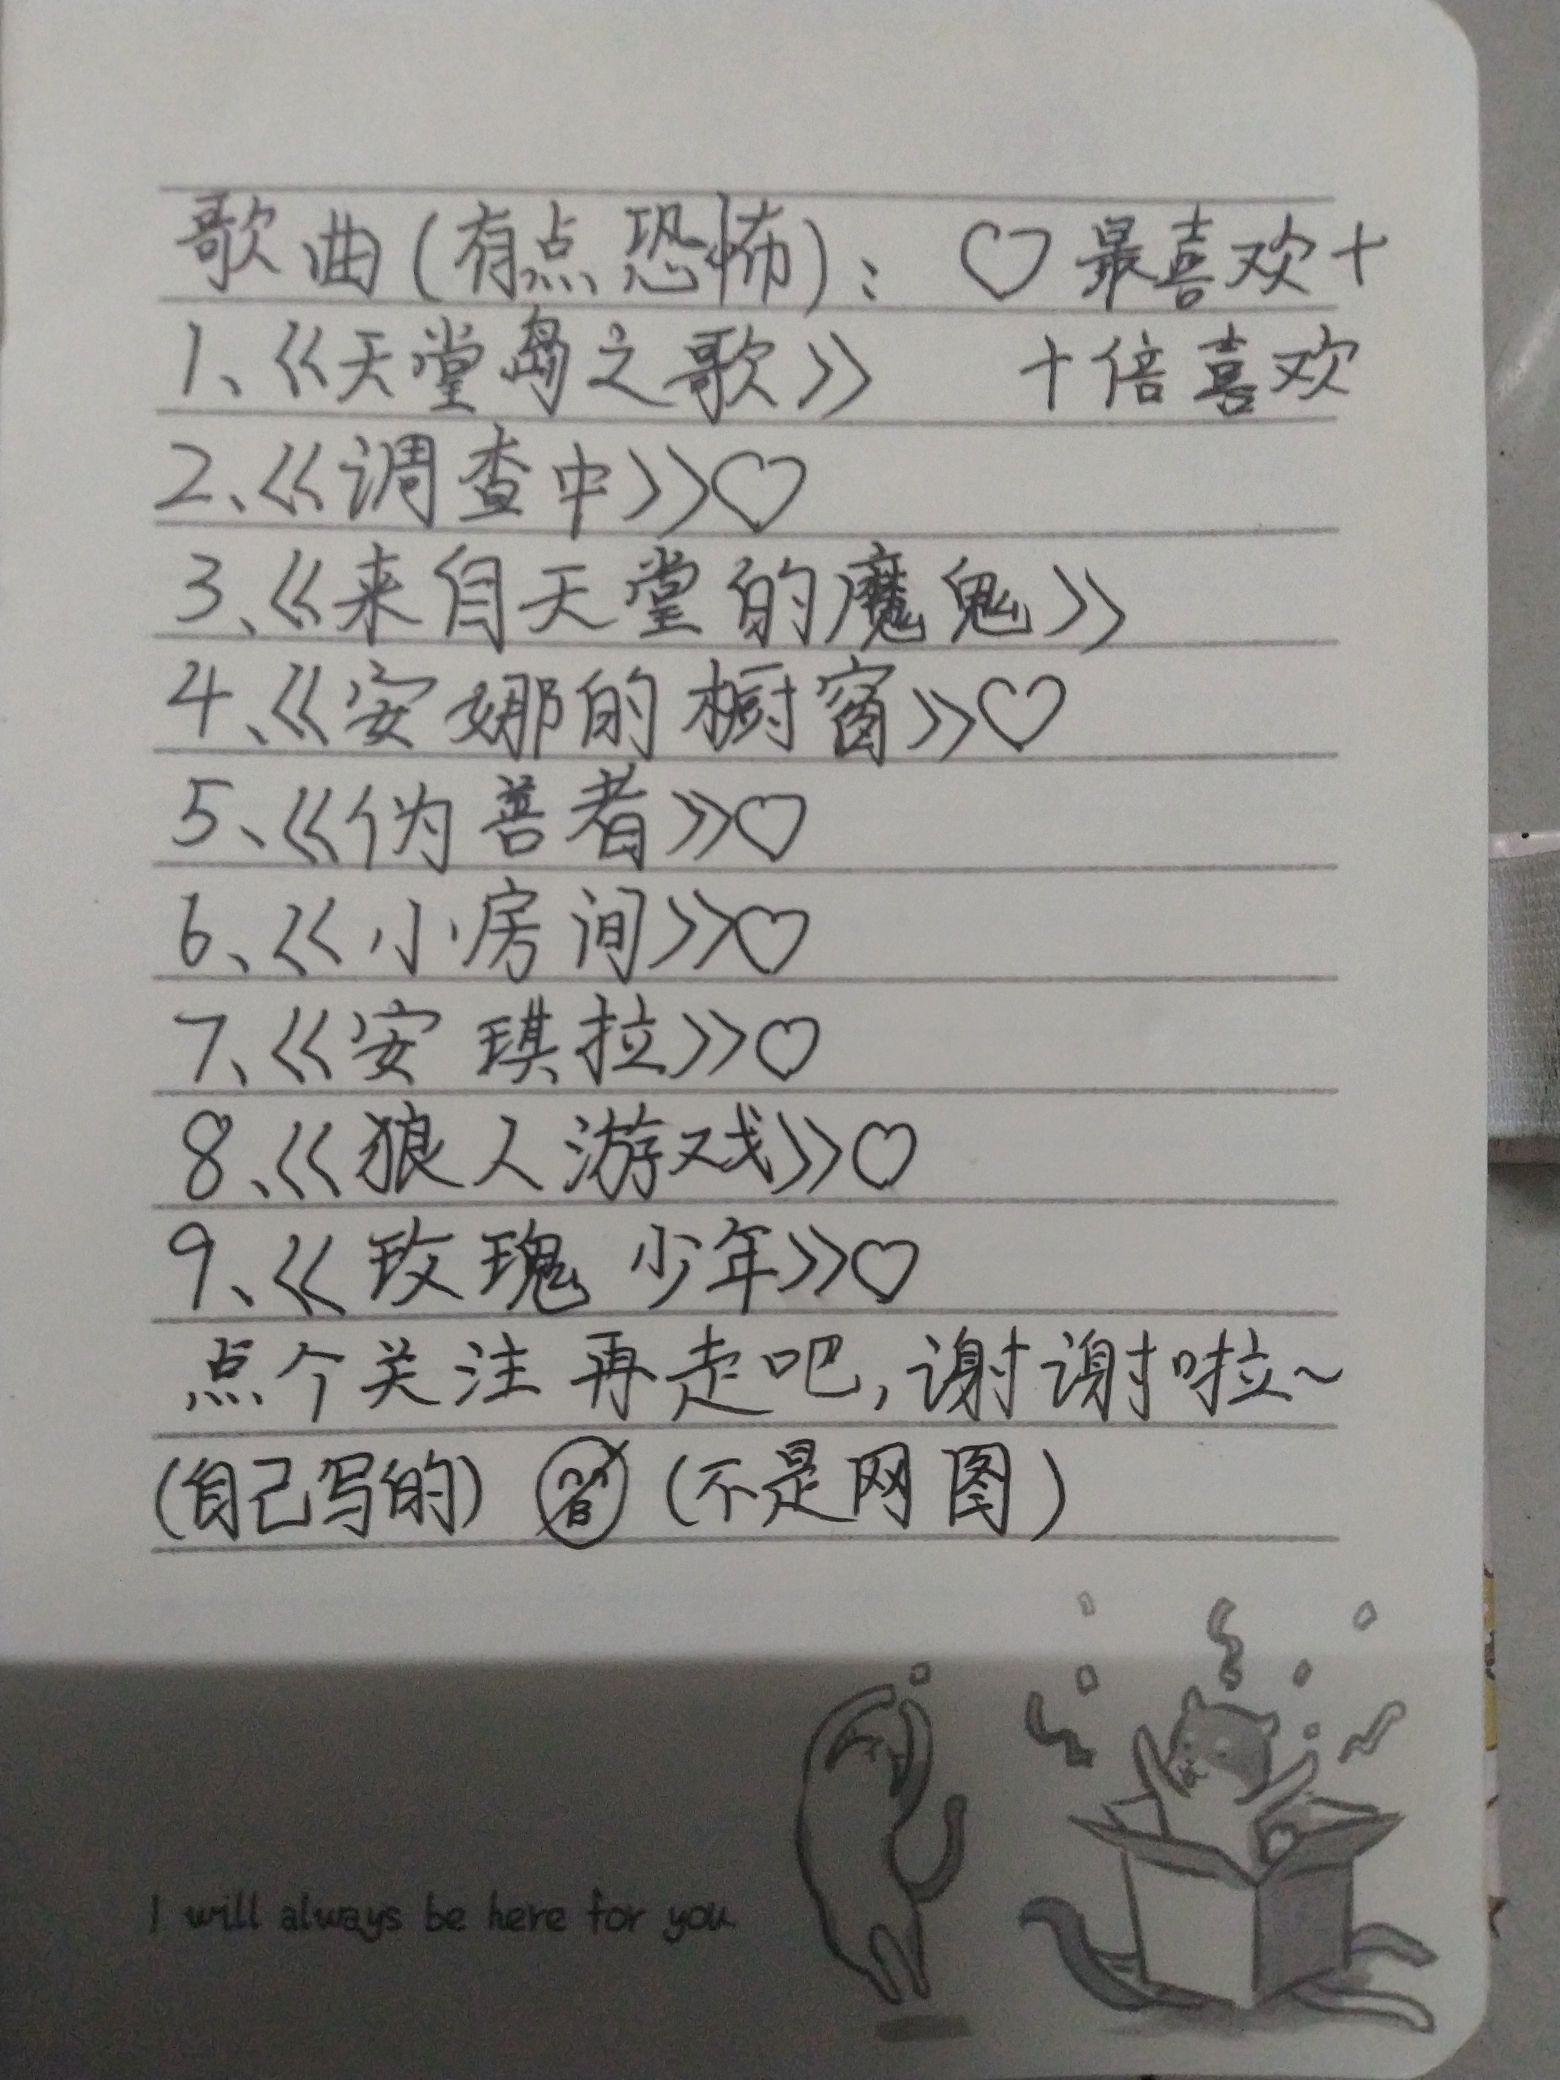 歌曲(有点恐怖): ♡最喜欢+
1、《天堂岛之歌》 十倍喜欢
2、《调查中》♡
3、《来自天堂的魔鬼》
4、《安娜的橱窗》♡
5、《伪善者》♡
6、《小房间》♡
7、《安琪拉》♡
8、《狼人游戏》♡
9、《玫瑰少年》♡
点个关注再走吧,谢谢啦~
(自己写的) (不是网图)
I will always be here for you